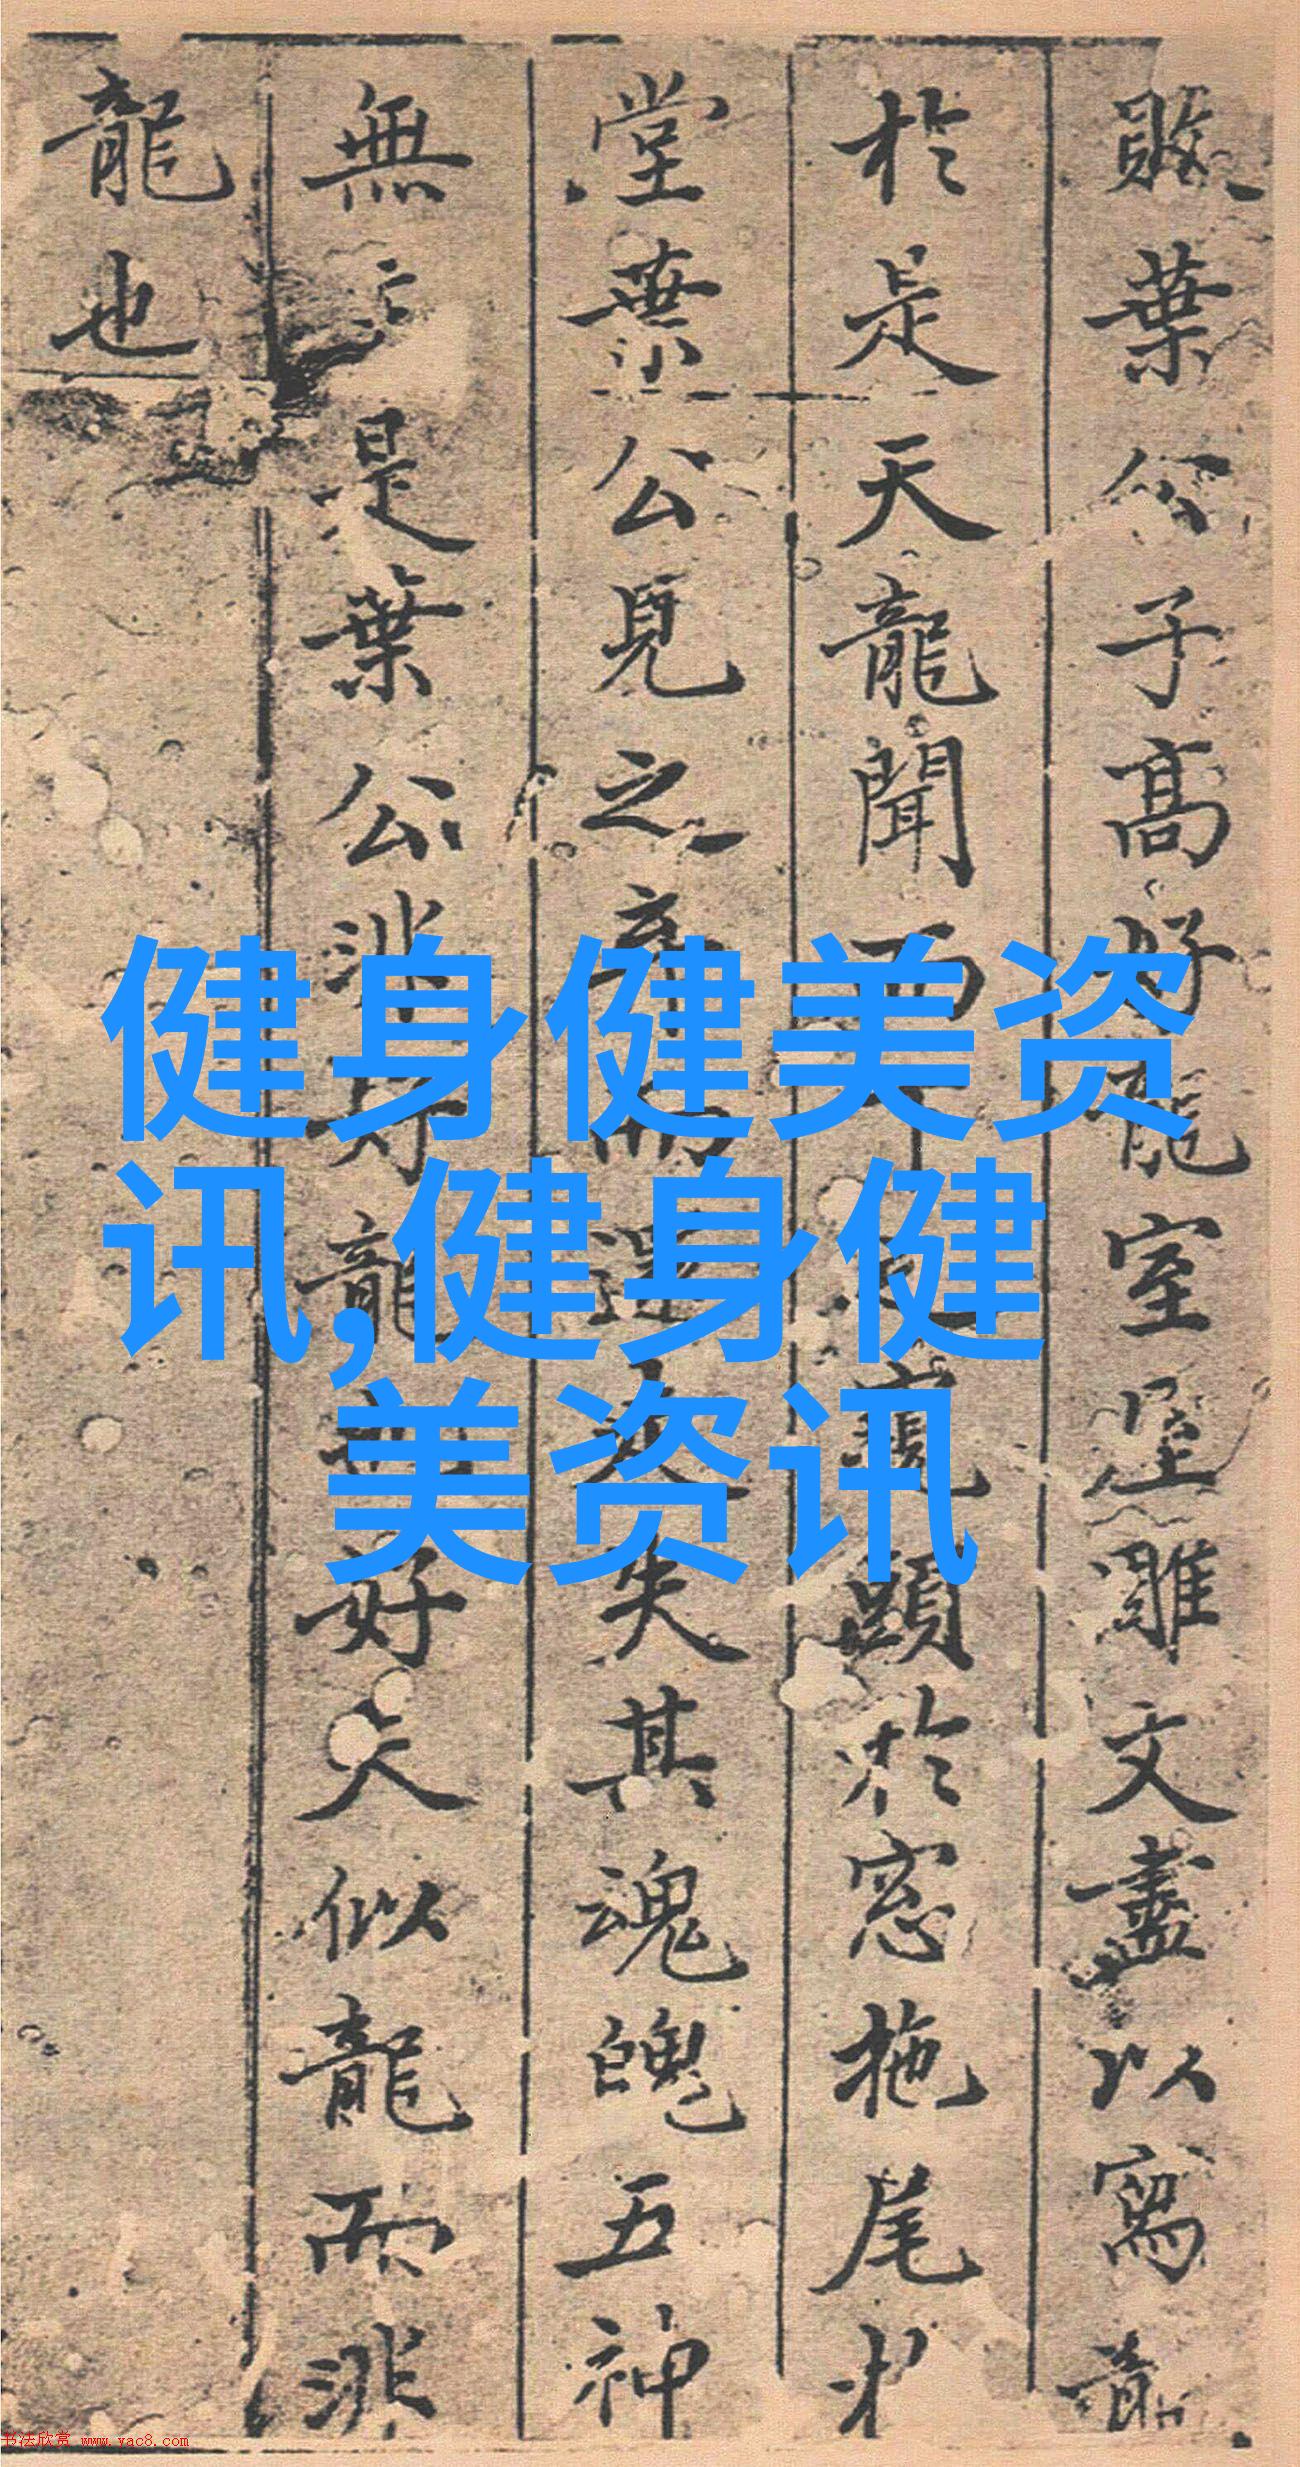 敗葉公子髙好龍室屋雕文盡以寫龍
於是天龍聞而下之窺頭於窓拖尾於
堂葉公見之弃而還走失其魂魄五神
無主是葉公非好龍也好夫似龍而非
龍也
健身健美资
讯,健身健
美资讯
书法欣赏 www.yac8.com